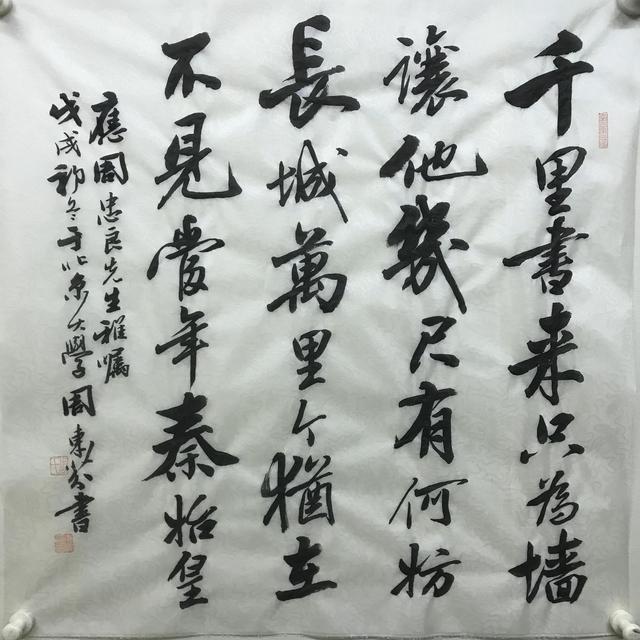 千里書来只為墙
讓他幾尺有何妨
長城萬里今猶在
不見當年秦始皇
應周忠良先生雅嘱
戊戌初冬于北京大學周書